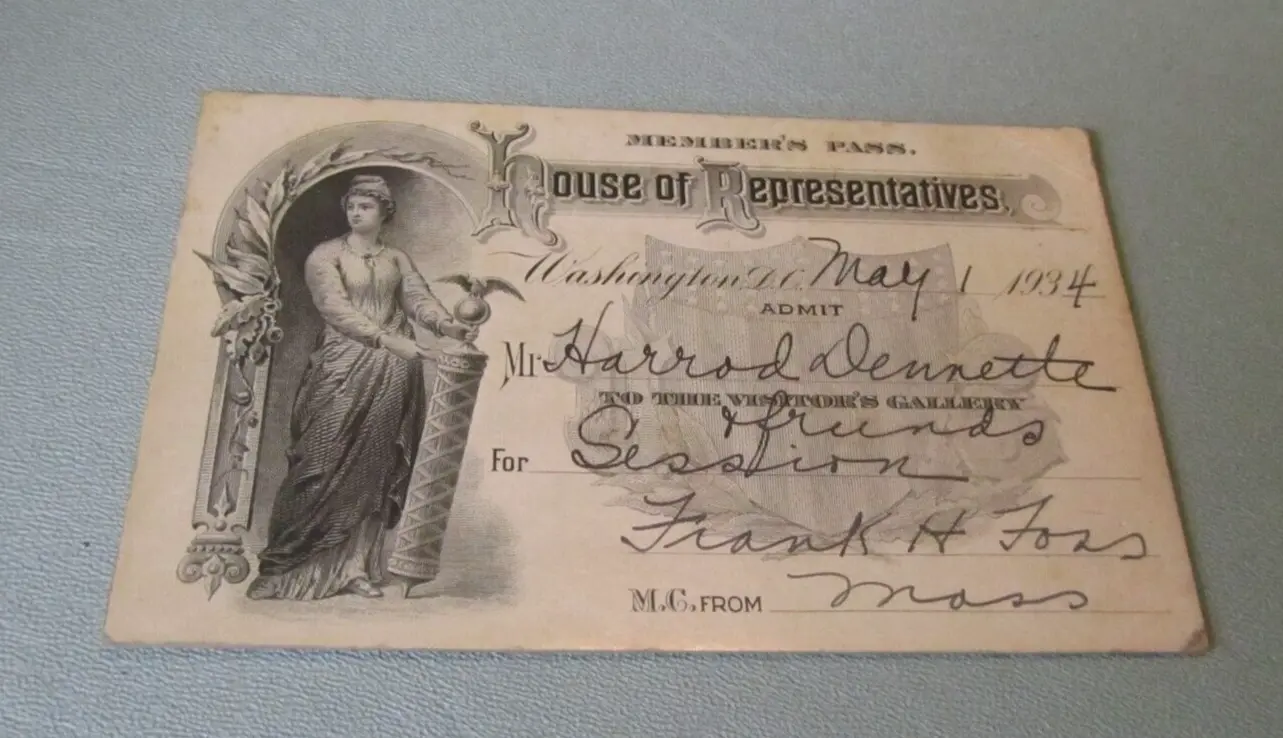 MEMBER'S PASS.
House of Representatives.
Washington D.C. May 1 1934
ADMIT
Mr Harrod Dennette
TO THE VISITOR'S GALLERY
& friends
For Session
Frank H Foss
M.C. FROM Mass